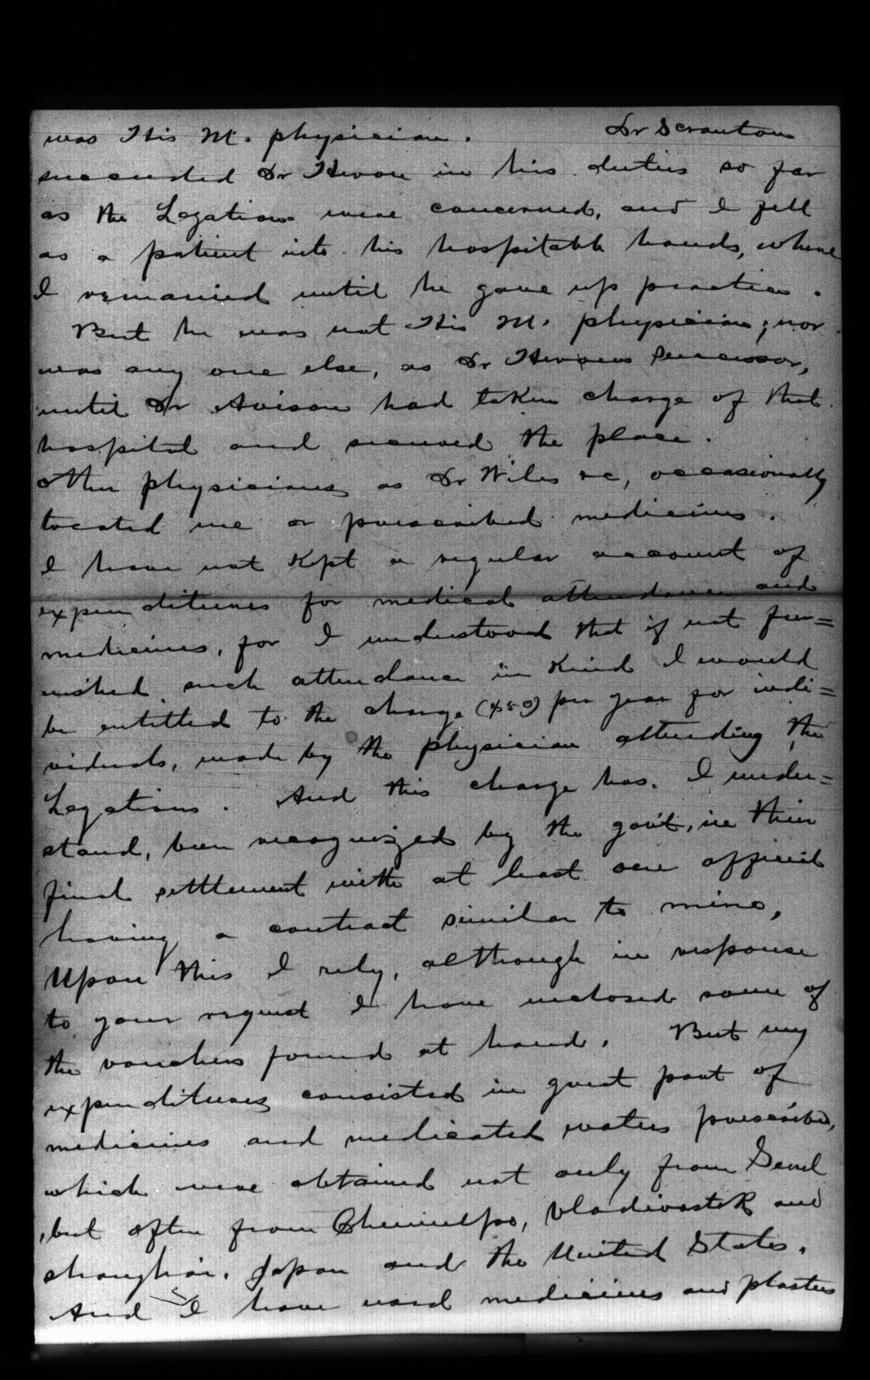 was His M. physician. Dr Scranton
succeeded Dr Heron in his duties so far
as the Legations were concerned, and I fell
as a patient into his hospitable hands, where
I remained until he gave up practice.
But he was not His M. physician; nor
was any one else, as Dr Herons Successor,
until Dr Avison had taken charge of that
hospital and secured the place.
Other physicians as Dr Wiles &c, occasionally
treated me or prescribed medicines.
I have not Kept a regular account of
expenditures for medical attendance and
medicines, for I understood that if not fur=
nished such attendance in Kind I would
be entitled to the charge ($50) per year for indi=
viduals, made by the physician attending the
Legations. And this charge has. I under=
stand, been recognized by the gov't, in their
final settlement with at least one official
having a contract similar to mine,
Upon this I rely, although in response
to your request I have inclosed some of
the vouchers found at hand. But my
expenditures consisted in great part of
medicines and medicated waters prescribed,
which were obtained not only from Seoul
, but often from Chemulpo, Vladivostok and
Shanghai. Japan and the United States.
And I have used medicines and plasters